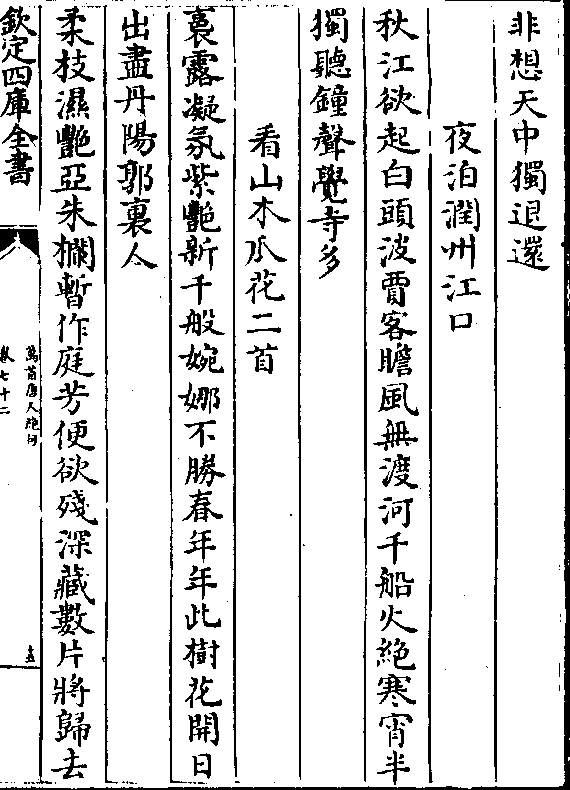 非想天中獨退還
夜泊潤州江口
秋江欲起白頭波賈客瞻風無渡河千船火絶寒宵半
獨聽鐘聲覺寺多
看山木瓜花二首
裛露凝氛紫艷新千般婉娜不勝春年年此樹花開日
出盡丹陽郭裏人
柔枝濕艷亞朱欄暫作庭芳便欲殘深藏數片將歸去
欽定四庫全書
萬首唐人絶句
卷七十二
十五